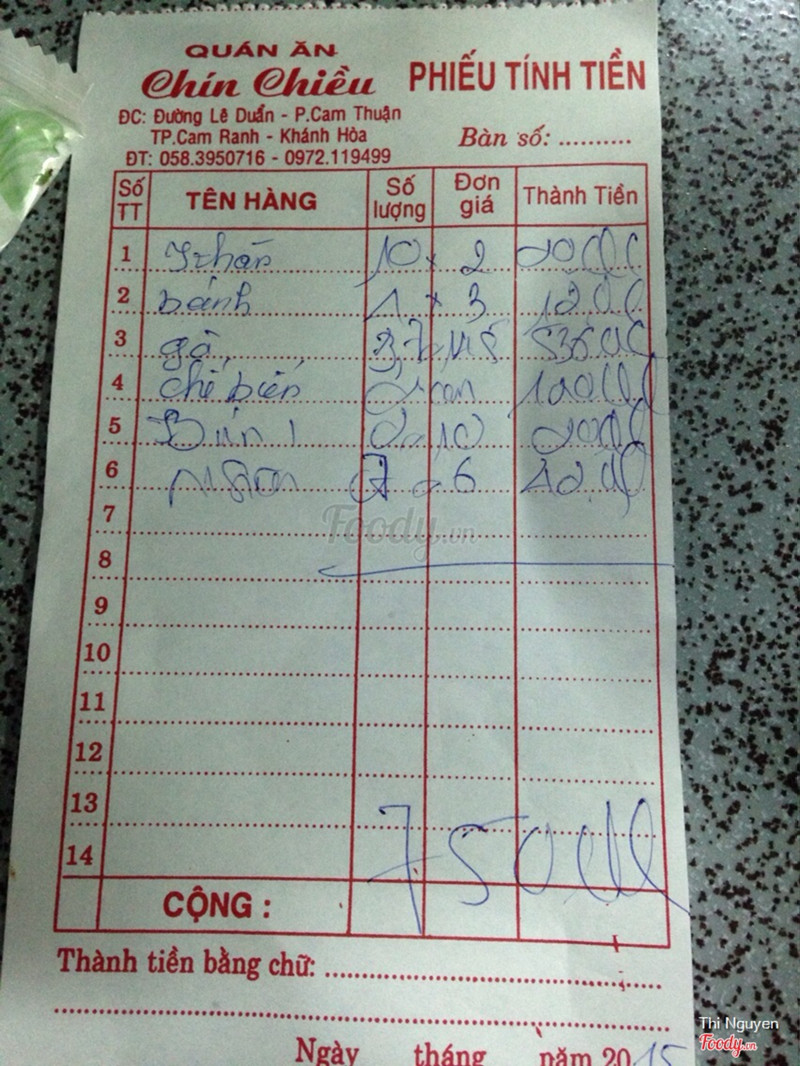 QUÁN ĂN
Chín Chiều
PHIẾU TÍNH TIỀN
ĐC: Đường Lê Duẩn - P.Cam Thuận
TP.Cam Ranh - Khánh Hòa
ĐT: 058.3950716 - 0972.119499
Bàn số: ..........
Số TT TÊN HÀNG Số lượng Đơn giá Thành Tiền
1 Khăn 10 x 2
2 bánh x 3
3 gà
4 chế biến
5 Bún 10
6 7 6
7
Foody.vn
8
9
10
11
12
13
14
CỘNG :
Thành tiền bằng chữ:
Ngày tháng năm 2015
Thi Nguyen
Foody.vn